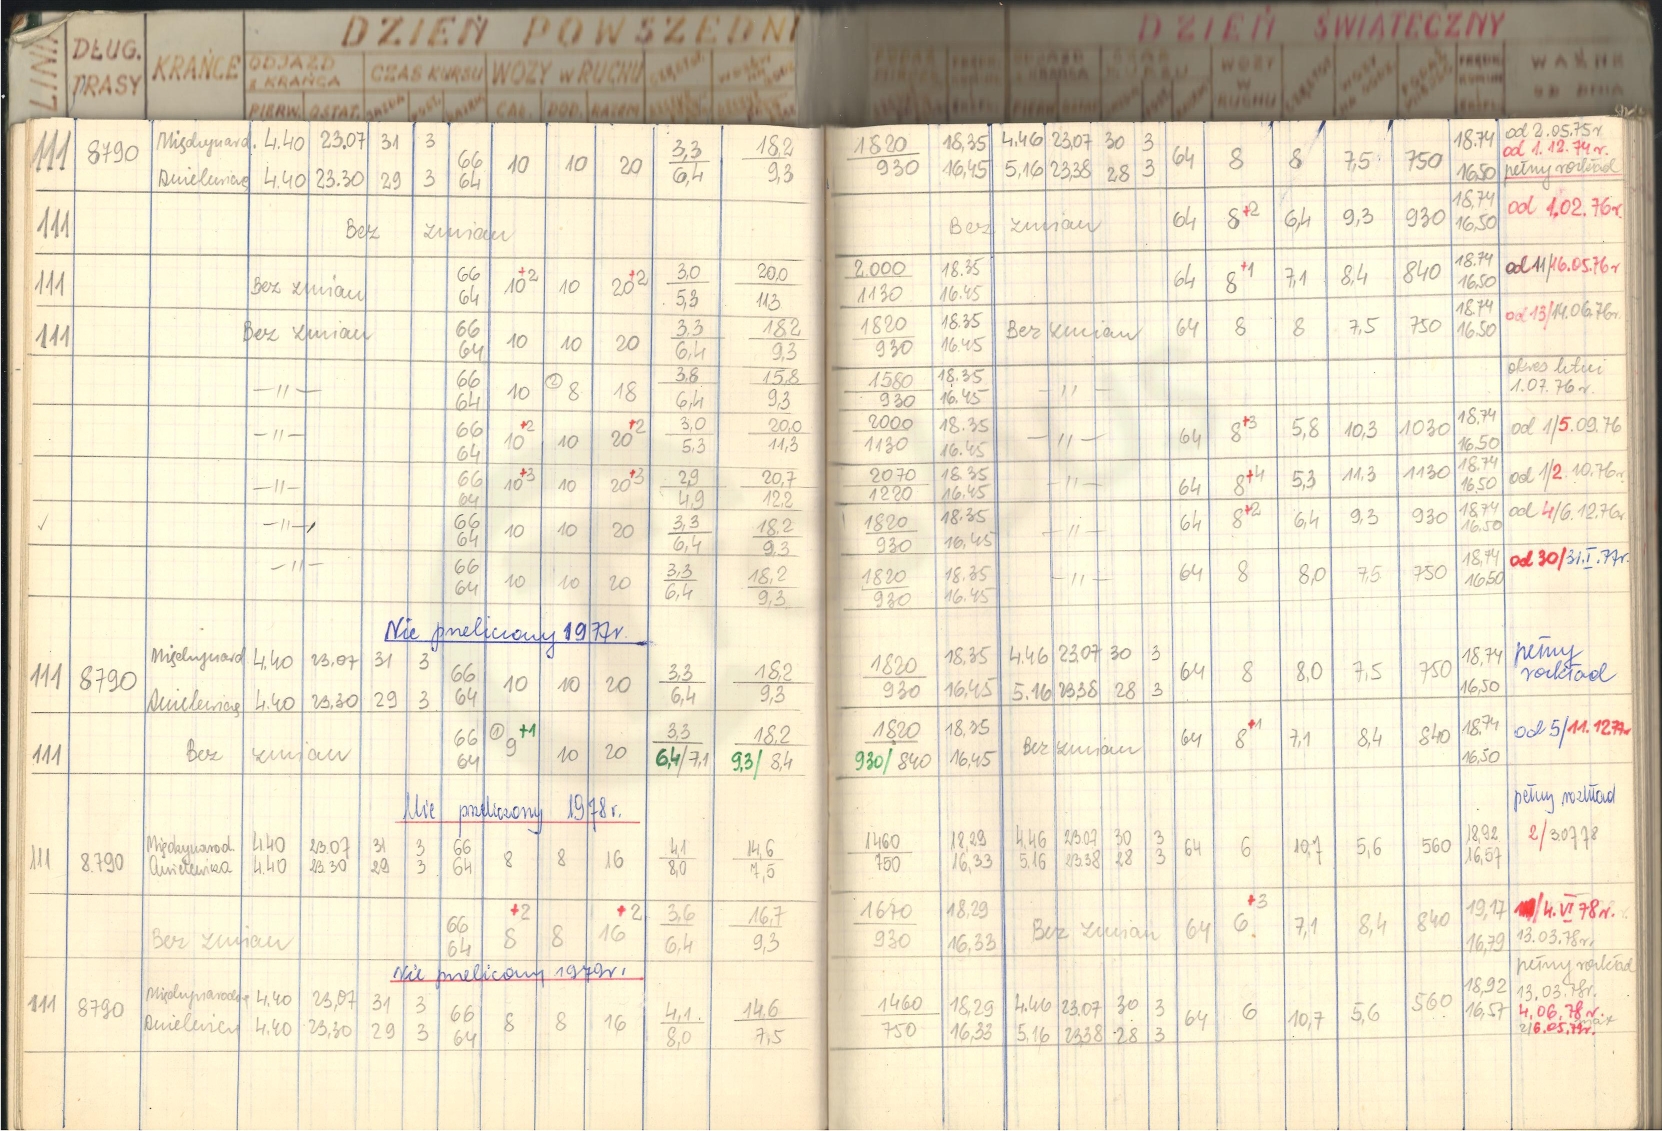 DZIEŃ POWSZEDNI DZIEŃ ŚWIATECZNY
LINIA DŁUG. TRASY KRAŃCE ODJAZD z KRAŃCA CZAS KURSU WOZY w RUCHU WAŻNE OD DNIA
PIERW. OSTAT. CAŁ. POD. RAZEM
111 8790 Międzynarod. 4.40 23.07 31 3 66 10 10 20 3,3 18,2 1820 18,35 4.46 23.07 30 3 64 8 8 7,5 750 18.74 od 2.05.75r
od 1.12.74r.
Anielewicza 4.40 23.30 29 3 64 6,4 9,3 930 16,45 5.16 23.38 28 3 16.50 pełny rozkład
111 Bez zmian Bez zmian 64 8+2 6,4 9,3 930 18,74 16,50 od 1.02.76r.
111 Bez zmian 66 64 10+2 10 20+2 3,0 5,3 20,0 11,3 2.000 1130 18.35 16.45 64 8+1 7,1 8,4 840 18.74 16,50 od 11/16.05.76r
111 Bez zmian 66 64 10 10 20 3,3 6,4 18,2 9,3 1820 930 18.35 16.45 Bez zmian 64 8 8 7,5 750 18.74 16.50 od 13/14.06.76r.
—"— 66 64 10 ② 8 18 3,8 6,4 15,8 9,3 1580 930 18.35 16.45 —"— okres letni 1.07.76r.
—"— 66 64 10+2 10 20+2 3,0 5,3 20,0 11,3 2000 1130 18.35 16.45 —"— 64 8+3 5,8 10,3 1030 18,74 16.50 od 1/5.09.76
—"— 66 64 10+3 10 20+3 2,9 4,9 20,7 12,2 2070 1220 18.35 16.45 —"— 64 8+4 5,3 11,3 1130 18.74 16,50 od 1/2.10.76r.
✓ —"— 66 64 10 10 20 3,3 6,4 18.2 9,3 1820 930 18.35 16,45 —"— 64 8+2 6,4 9,3 930 18,74 16.50 od 4/6.12.76r
—"— 66 64 10 10 20 3,3 6,4 18,2 9,3 1820 930 18.35 16.45 —"— 64 8 8,0 7,5 750 18,74 16,50 od 30/31.I.77r.
Nie przeliczony 1977r.
111 8790 Międzynarod 4.40 23.07 31 3 66 10 10 20 3,3 18,2 1820 18,35 4.46 23.07 30 3 64 8 8,0 7,5 750 18,74 pełny
Anielewicza 4.40 23.30 29 3 64 6,4 9,3 930 16,45 5.16 23.38 28 3 16,50 rozkład
111 Bez zmian 66 64 ① 9+1 10 20 3,3 6,4/7,1 18,2 9,3/8,4 1820 930/840 18,35 16,45 Bez zmian 64 8+1 7,1 8,4 840 18.74 16,50 od 5/11.12.77r
Nie przeliczony 1978r. pełny rozkład
111 8.790 Międzynarod. 4.40 23.07 31 3 66 8 8 16 4,1 14,6 1460 18,29 4.46 23.07 30 3 64 6 10,7 5,6 560 18,92 2/3.07.78
Anielewicza 4.40 23.30 29 3 64 8,0 7,5 750 16,33 5.16 23.38 28 3 16,57
Bez zmian 66 64 8+2 8 16+2 3,6 6,4 16,7 9,3 1670 930 18,29 16,33 Bez zmian 64 6+3 7,1 8,4 840 19,17 16,79 /4.VI 78r. 13.03.78r.
Nie przeliczony 1979r. pełny rozkład
111 8790 Międzynarodowa 4.40 23,07 31 3 66 8 8 16 4,1 14,6 1460 18,29 4.46 23.07 30 3 64 6 10,7 5,6 560 18,92 13.03.78r.
4,06,78r.
Anielewicz 4.40 23,30 29 3 64 8,0 7,5 750 16,33 5.16 23.38 28 3 16,57 2/6.05.79r.